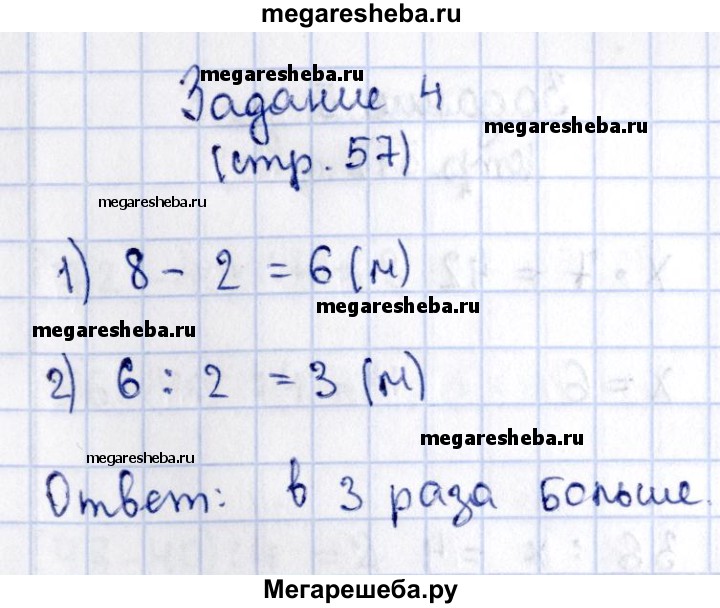 megaresheba.ru
megaresheba.ru
Задание 4
megaresheba.ru
(стр. 57)
megaresheba.ru
1) 8 - 2 = 6 (м)
megaresheba.ru
megaresheba.ru
2) 6 : 2 = 3 (м)
megaresheba.ru
megaresheba.ru
Ответ: в 3 раза больше.
Мегарешеба.ру